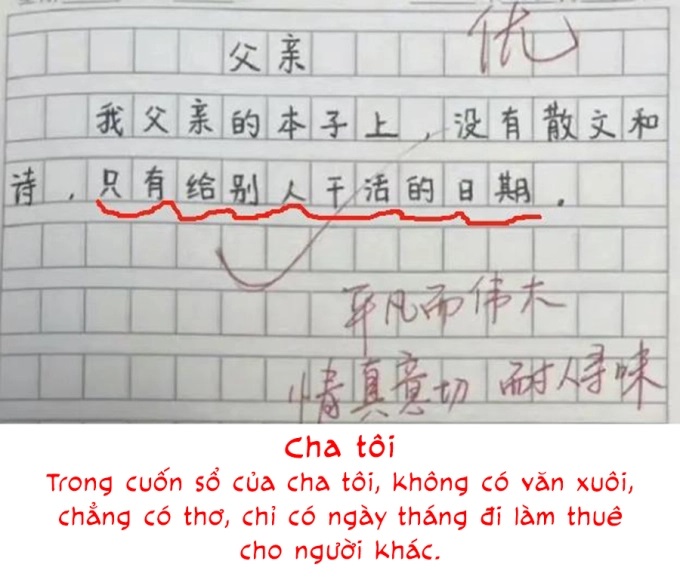 优
父亲
我父亲的本子上，没有散文和
诗，只有给别人干活的日期。
平凡而伟大
情真意切 耐人寻味
Cha tôi
Trong cuốn sổ của cha tôi, không có văn xuôi,
chẳng có thơ, chỉ có ngày tháng đi làm thuê
cho người khác.